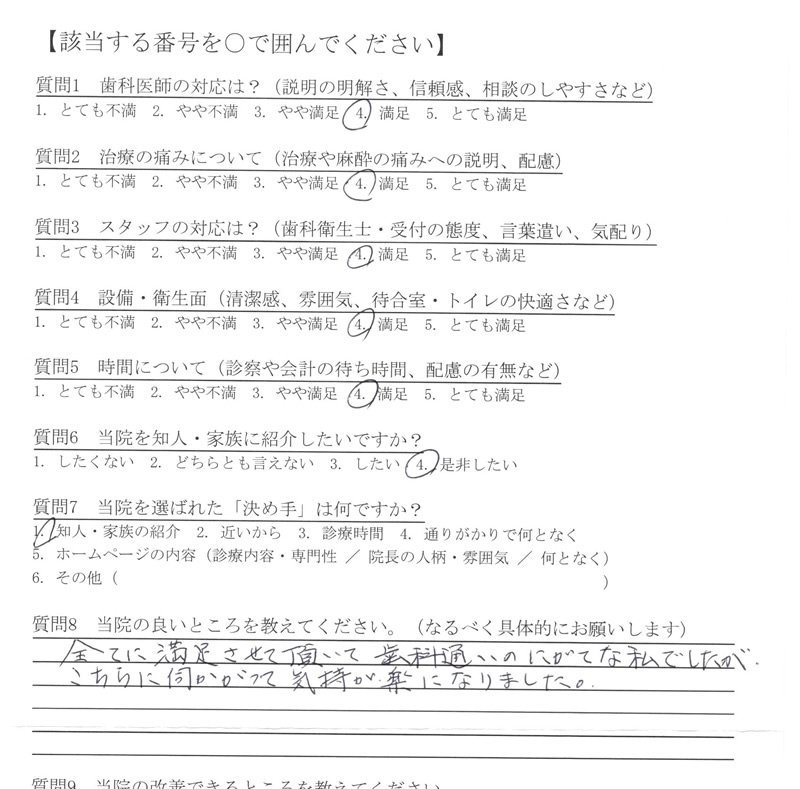 【該当する番号を○で囲んでください】
質問1　歯科医師の対応は？（説明の明解さ、信頼感、相談のしやすさなど）
1. とても不満　2. やや不満　3. やや満足　4. 満足　5. とても満足
質問2　治療の痛みについて（治療や麻酔の痛みへの説明、配慮）
1. とても不満　2. やや不満　3. やや満足　4. 満足　5. とても満足
質問3　スタッフの対応は？（歯科衛生士・受付の態度、言葉遣い、気配り）
1. とても不満　2. やや不満　3. やや満足　4. 満足　5. とても満足
質問4　設備・衛生面（清潔感、雰囲気、待合室・トイレの快適さなど）
1. とても不満　2. やや不満　3. やや満足　4. 満足　5. とても満足
質問5　時間について（診察や会計の待ち時間、配慮の有無など）
1. とても不満　2. やや不満　3. やや満足　4. 満足　5. とても満足
質問6　当院を知人・家族に紹介したいですか？
1. したくない　2. どちらとも言えない　3. したい　4. 是非したい
質問7　当院を選ばれた「決め手」は何ですか？
1. 知人・家族の紹介　2. 近いから　3. 診療時間　4. 通りがかりで何となく
5. ホームページの内容（診療内容・専門性 ／ 院長の人柄・雰囲気 ／ 何となく）
6. その他（　）
質問8　当院の良いところを教えてください。（なるべく具体的にお願いします）
全てに満足させて頂いて 歯科通いのにがてな私でしたが、
こちらに伺かがって気持が楽になりました。
質問9　当院の改善できるところを教えてください